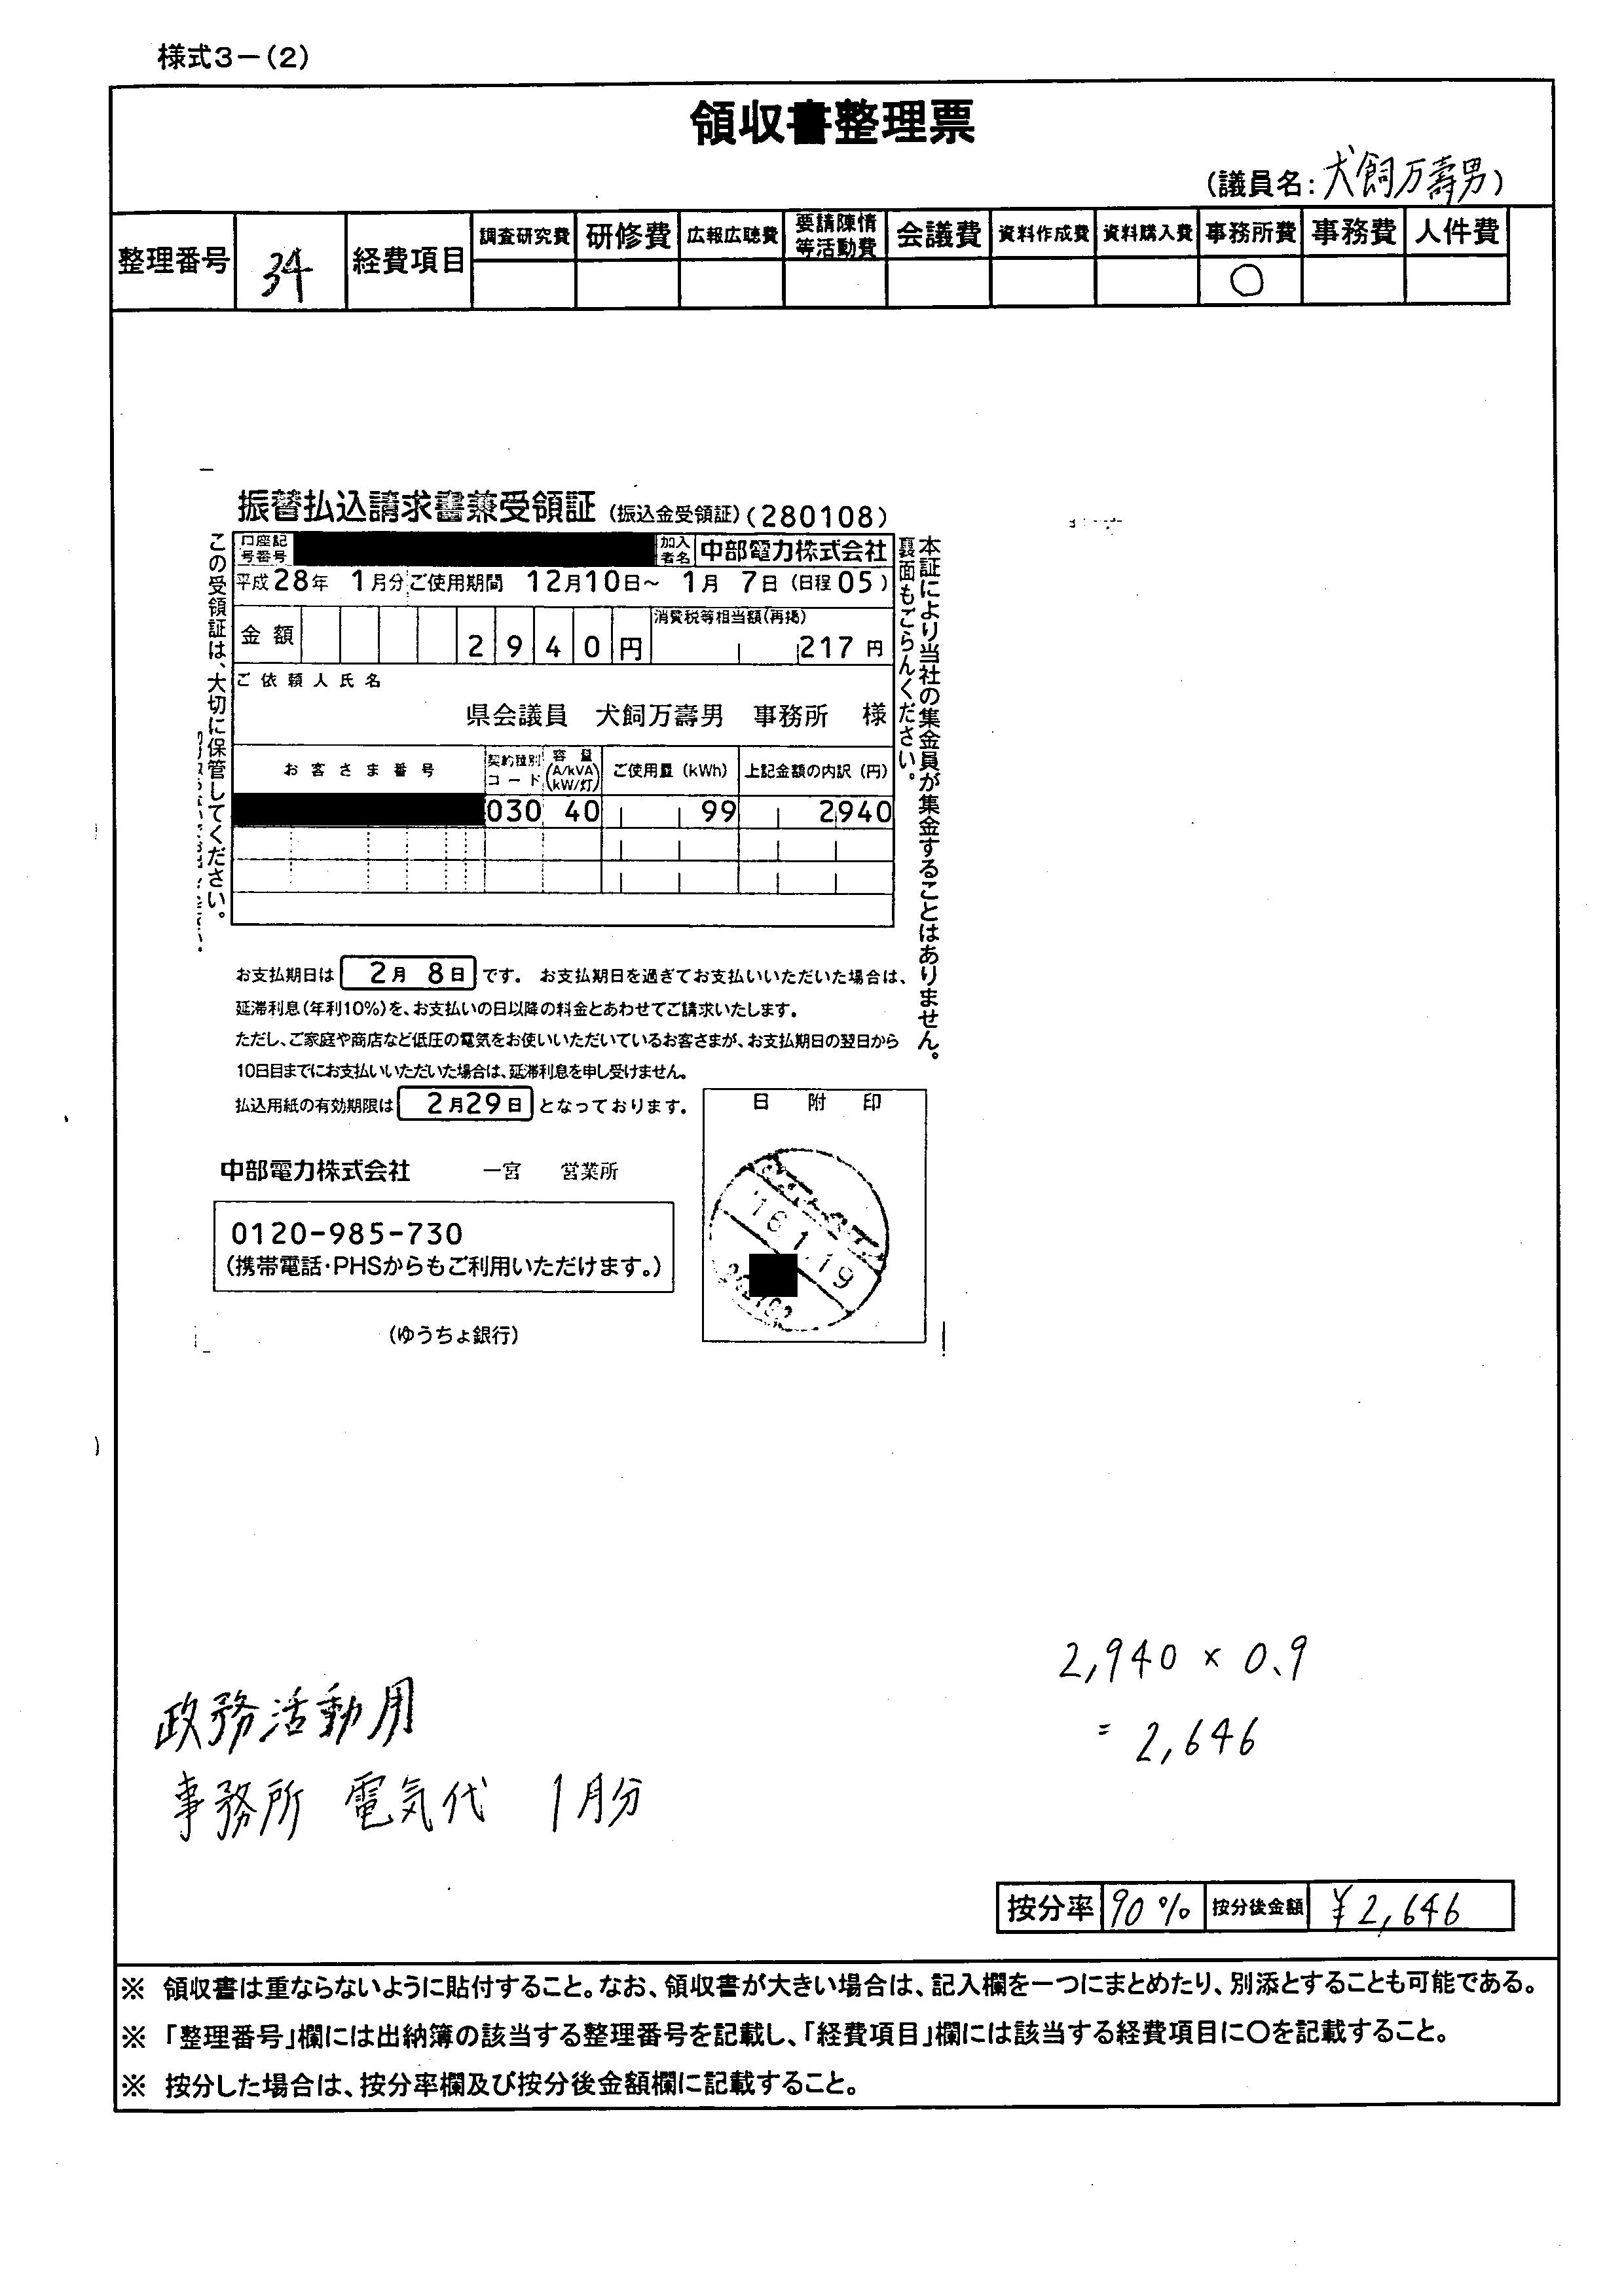 様式3-(2)
領収書整理票
(議員名:犬飼万壽男)
整理番号 34 経費項目 調査研究費 研修費 広報広聴費 要請陳情等活動費 会議費 資料作成費 資料購入費 事務所費 事務費 人件費
○
振替払込請求書兼受領証 (振込金受領証) (280108)
口座記号番号 加入者名 中部電力株式会社
平成28年 1月分 ご使用期間 12月10日~ 1月 7日 (日程05)
金額 2940円 消費税等相当額(再掲) 217円
ご依頼人氏名
県会議員 犬飼万壽男 事務所 様
お客さま番号 契約種別コード 容量(A/kVA)(kW/灯) ご使用量(kWh) 上記金額の内訳(円)
030 40 99 2940
この受領証は、大切に保管してください。
本証により当社の集金員が集金することはありません。
裏面もごらんください。
お支払期日は 2月 8日 です。 お支払期日を過ぎてお支払いいただいた場合は、
延滞利息(年利10%)を、お支払いの日以降の料金とあわせてご請求いたします。
ただし、ご家庭や商店など低圧の電気をお使いいただいているお客さまが、お支払期日の翌日から
10日目までにお支払いいただいた場合は、延滞利息を申し受けません。
払込用紙の有効期限は 2月29日 となっております。
日附印
16.1.19
中部電力株式会社 一宮 営業所
0120-985-730
(携帯電話・PHSからもご利用いただけます。)
(ゆうちょ銀行)
2,940 × 0.9
= 2,646
政務活動用
事務所 電気代 1月分
按分率 90% 按分後金額 ¥2,646
※ 領収書は重ならないように貼付すること。なお、領収書が大きい場合は、記入欄を一つにまとめたり、別添とすることも可能である。
※ 「整理番号」欄には出納簿の該当する整理番号を記載し、「経費項目」欄には該当する経費項目に○を記載すること。
※ 按分した場合は、按分率欄及び按分後金額欄に記載すること。